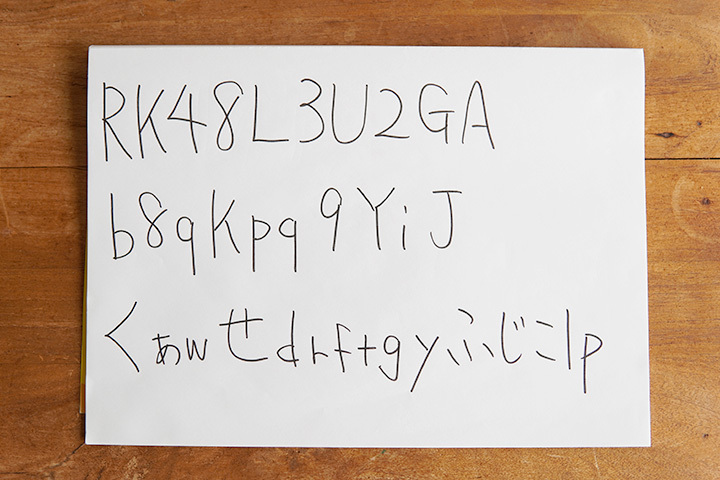 RK48L3U2GA
b8qKpq9YiJ
くぁwせdrftgyふじこlp